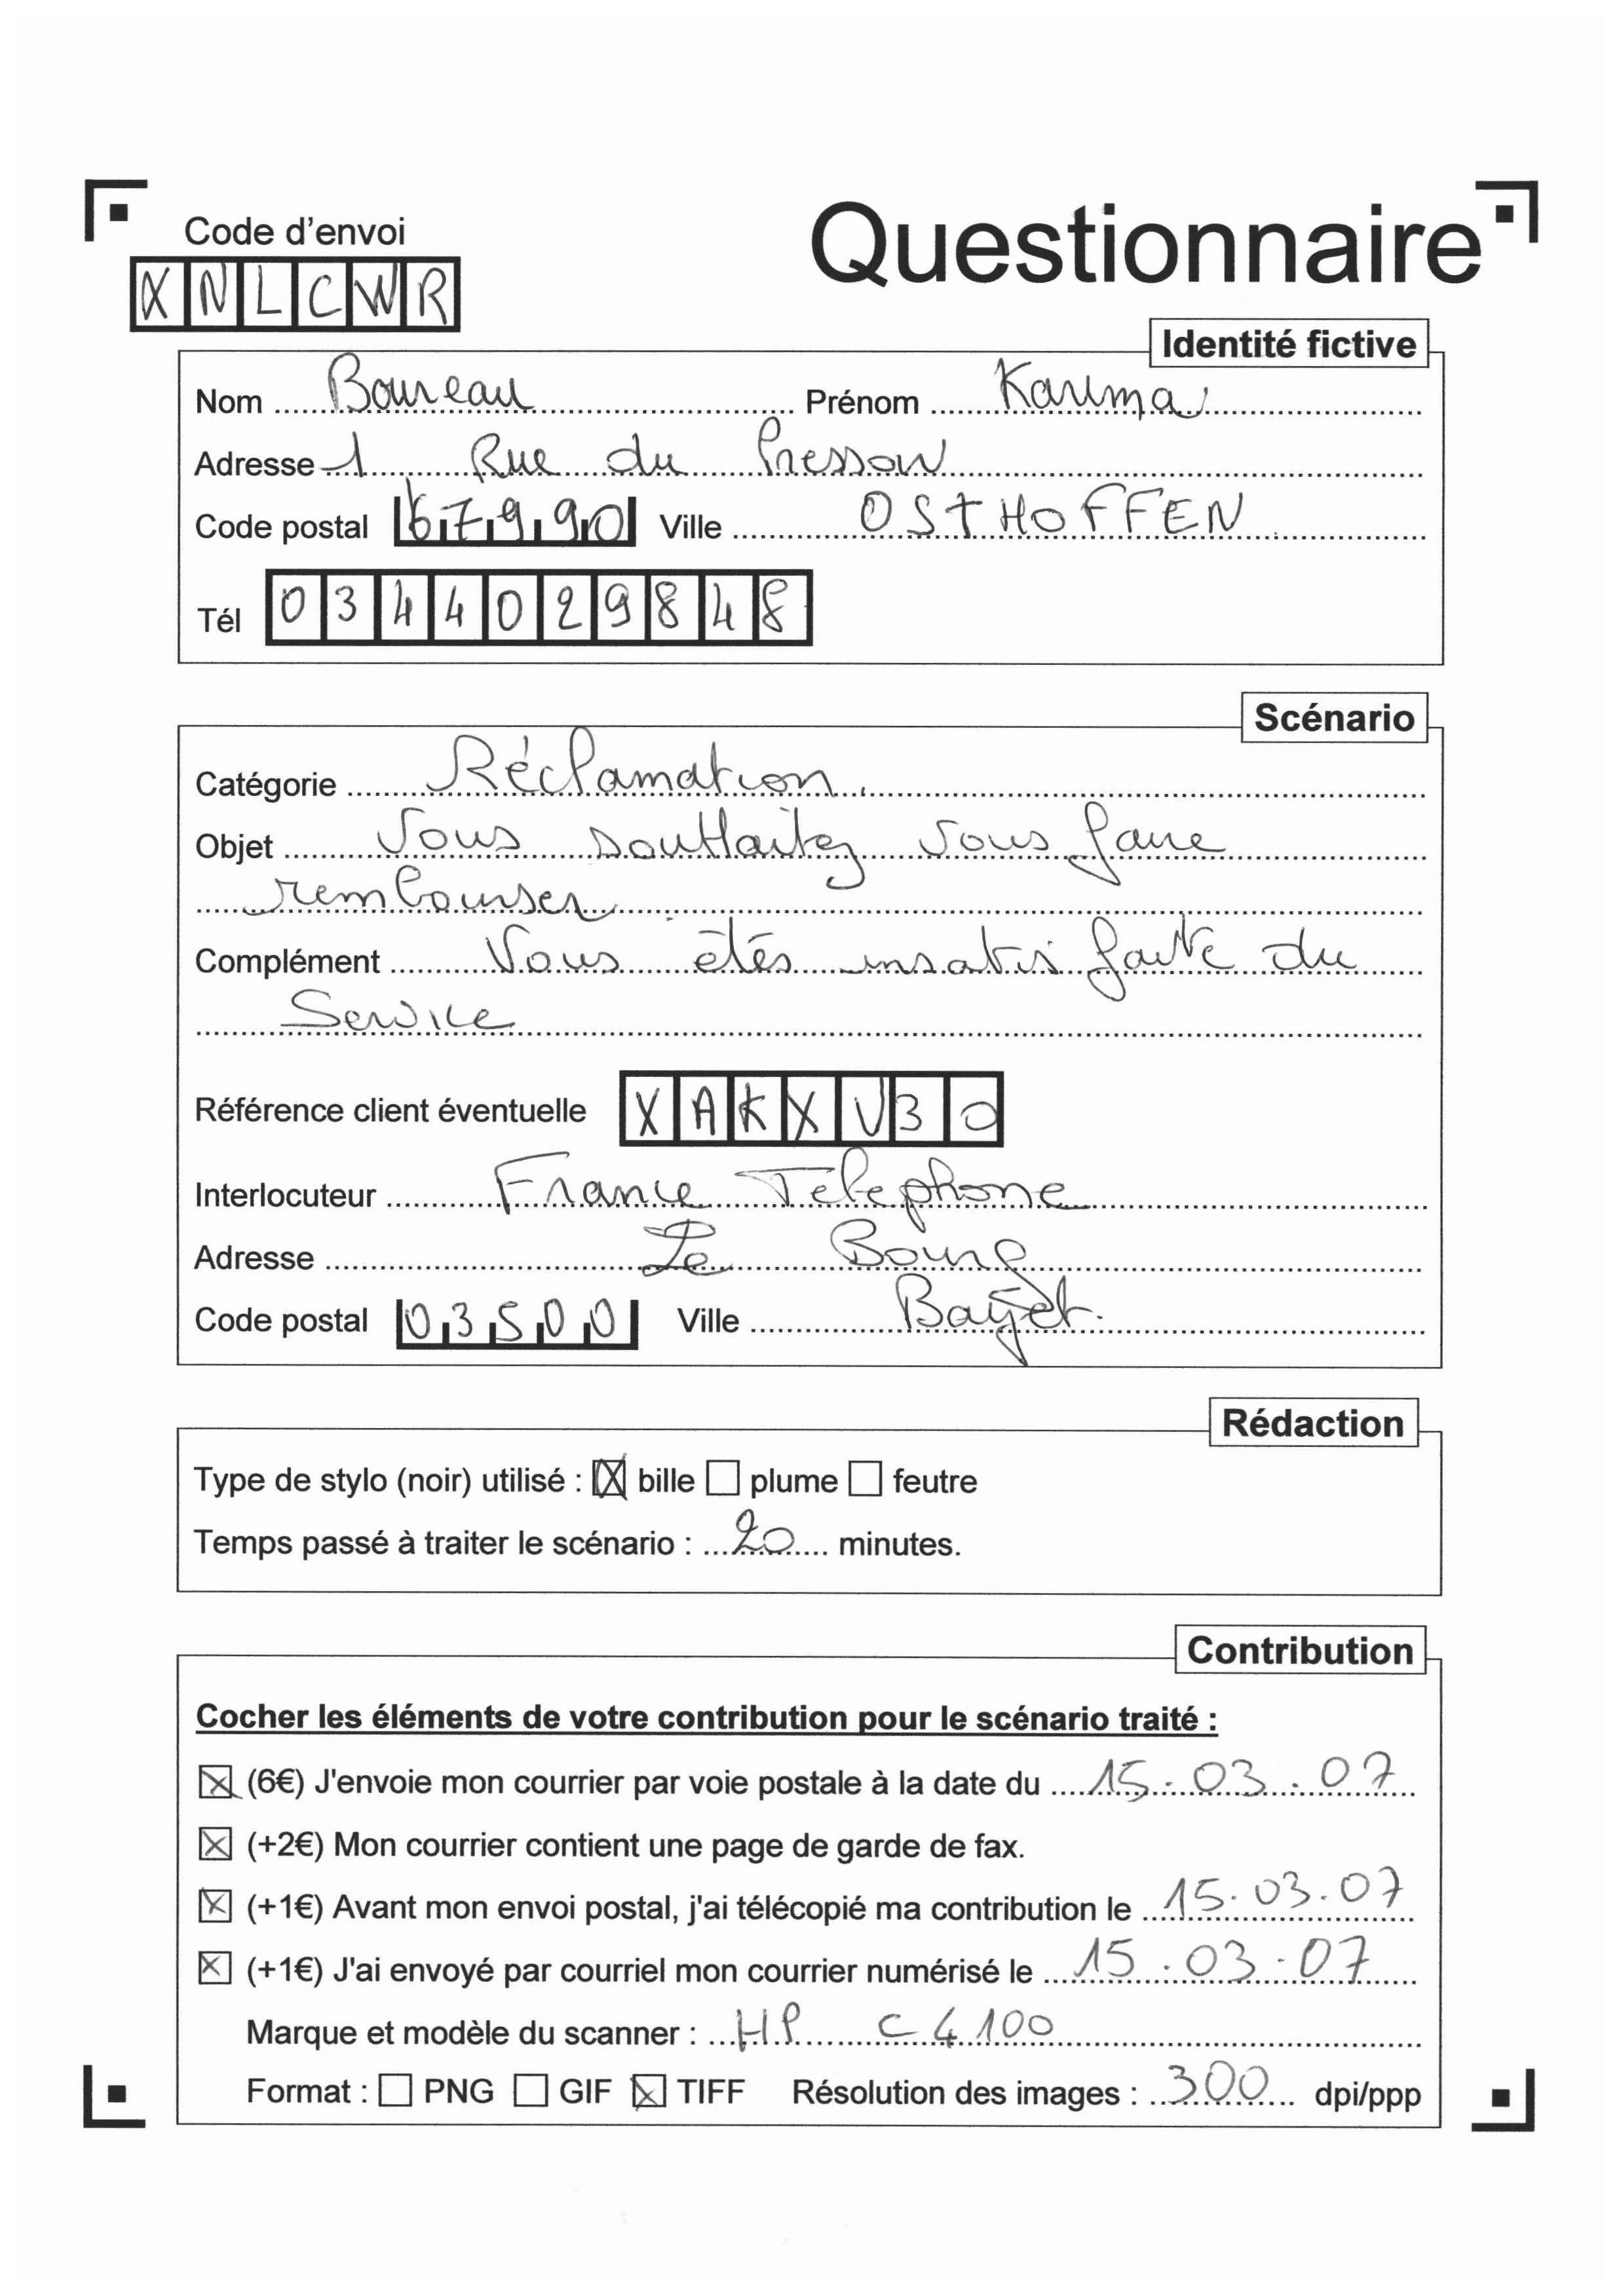 Code d'envoi
Questionnaire
XNLCWR
Identité fictive
Nom Boureau Prénom Karima
Adresse 1 Rue du Pressoir
Code postal 67990 Ville OSTHOFFEN
Tél 0344029848
Scénario
Catégorie Réclamation
Objet Vous souhaitez vous faire
rembourser
Complément Vous êtes insatisfaite du
Service
Référence client éventuelle XAKXV30
Interlocuteur France Telephone
Adresse Le Bourg
Code postal 03500 Ville Bayet
Rédaction
Type de stylo (noir) utilisé : ☒ bille ☐ plume ☐ feutre
Temps passé à traiter le scénario : 20 minutes.
Contribution
Cocher les éléments de votre contribution pour le scénario traité :
☒ (6€) J'envoie mon courrier par voie postale à la date du 15.03.07
☒ (+2€) Mon courrier contient une page de garde de fax.
☒ (+1€) Avant mon envoi postal, j'ai télécopié ma contribution le 15.03.07
☒ (+1€) J'ai envoyé par courriel mon courrier numérisé le 15.03.07
Marque et modèle du scanner : HP C4100
Format : ☐ PNG ☐ GIF ☒ TIFF Résolution des images : 300 dpi/ppp